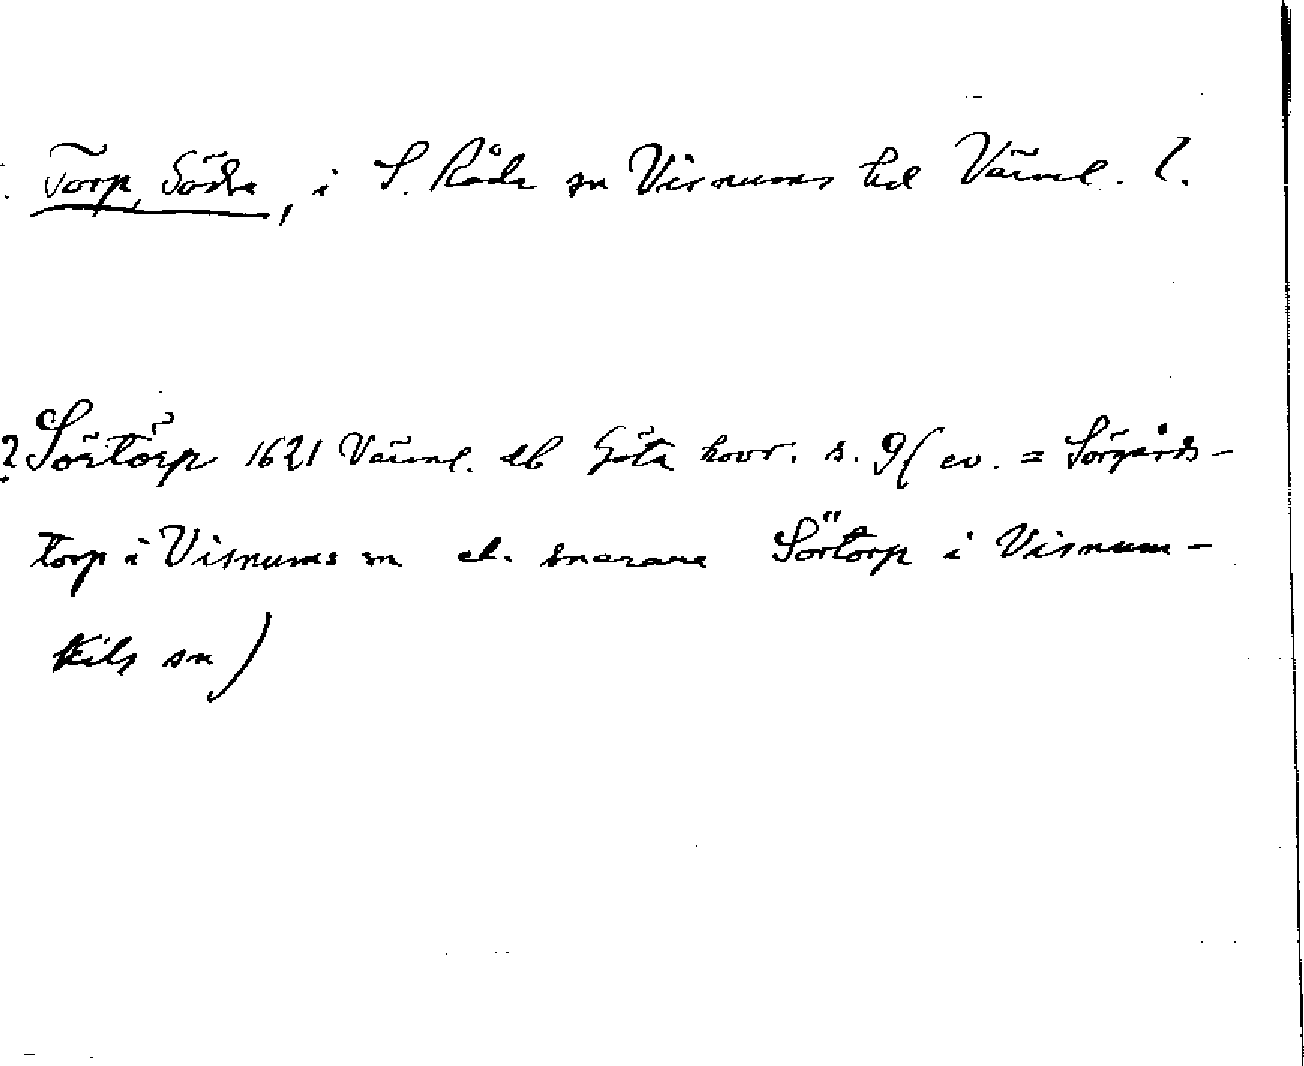 Torp, Södra, i S. Råda sn Visnums hd Värml. l.
? Sörtorp 1621 Värml. db Göta hovr. s. 9 (ev. = Sörgårds-
torp i Visnums sn el. snarare Sörtorp i Visnum-
Kils sn)